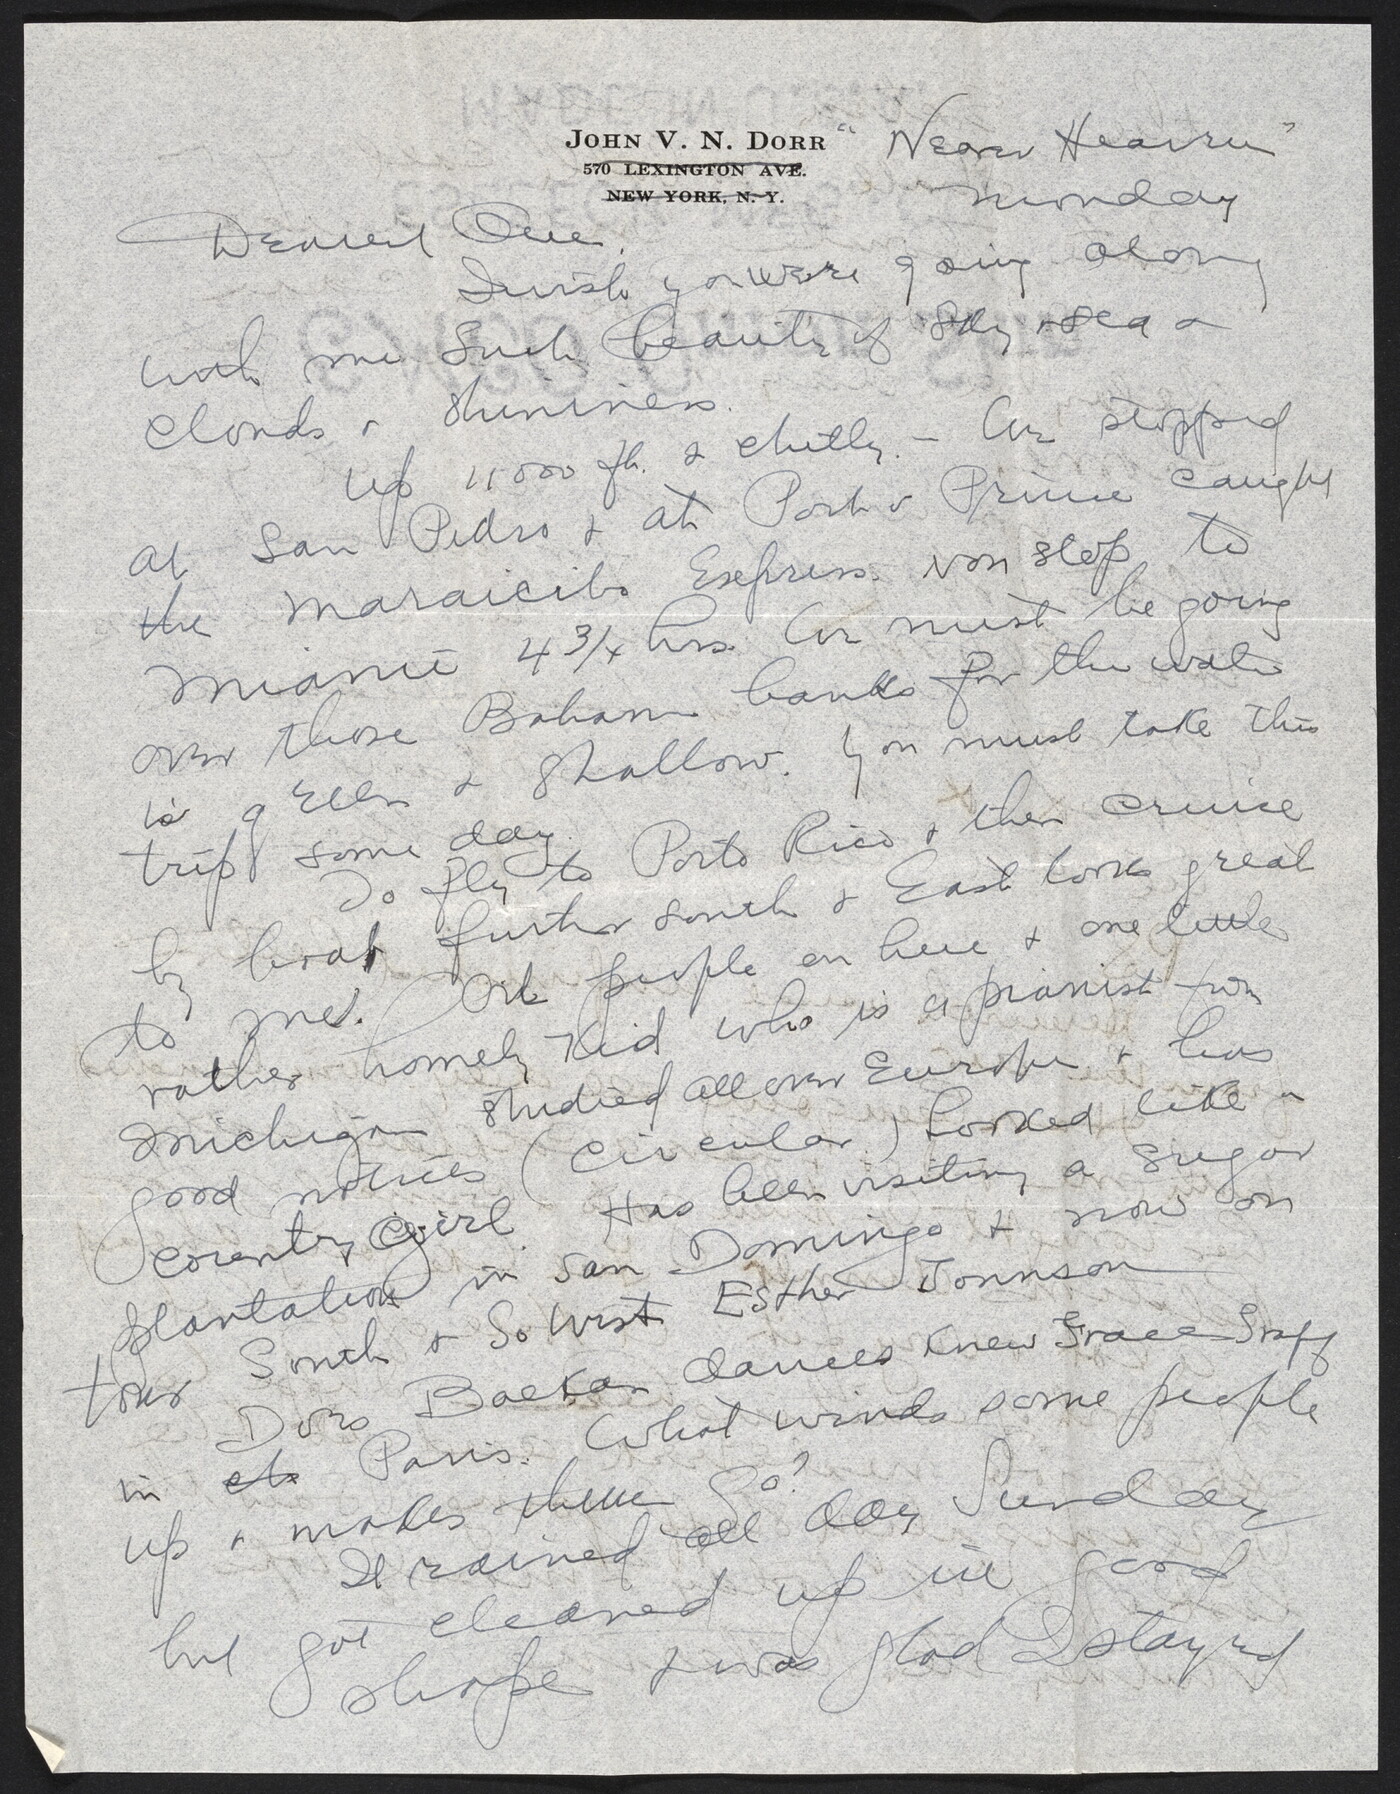 JOHN V. N. DORR
570 LEXINGTON AVE.
NEW YORK, N. Y.
"Nearer Heaven"
Monday
Dearest One,
I wish you were going along
with me Such beauty of sky & sea &
clouds & shininess.
up 11000 ft. & chilly. - We stopped
at San Pedro & at Port o Prince caught
the Maraicibo Express. non stop to
Miami 4 3/4 hrs. We must be going
over those Bahama banks for the water
is green & shallow. You must take this
trip some day.
To fly to Porto Rico & then cruise
by boat further south & East looks great
to me. Oil people on here & one little
rather homely kid who is a pianist from
Michigan studied all over Europe & has
good notices (circular) Looked like a
country girl. Has been visiting a sugar
plantation in San Domingo & now on
tour South & So West Esther Jonnson
Doro Backan dances knew Grace Graff
in Paris. What winds some people
up & makes them Go?
It rained all day Sunday
but got cleaned up in good
shape & was glad I stayed